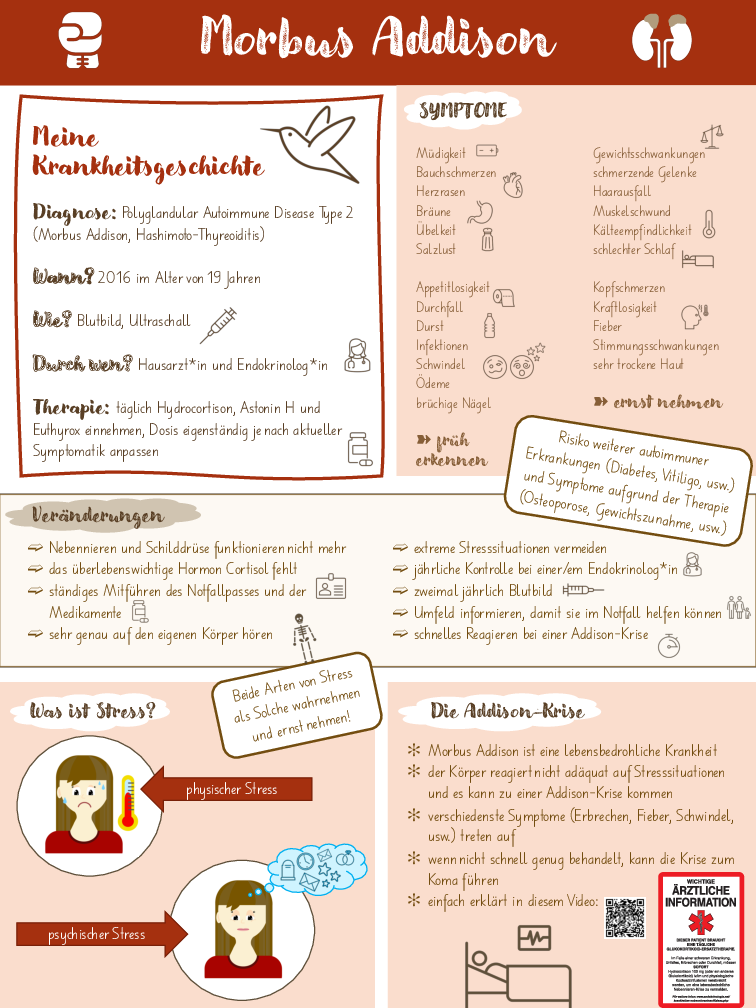 Morbus Addison
Meine
Krankheitsgeschichte
Diagnose: Polyglandular Autoimmune Disease Type 2
(Morbus Addison, Hashimoto-Thyreoiditis)
Wann? 2016 im Alter von 19 Jahren
Wie? Blutbild, Ultraschall
Durch wen? Hausarzt*in und Endokrinolog*in
Therapie: täglich Hydrocortison, Astonin H und
Euthyrox einnehmen, Dosis eigenständig je nach aktueller
Symptomatik anpassen
SYMPTOME
Müdigkeit
Bauchschmerzen
Herzrasen
Bräune
Übelkeit
Salzlust
Appetitlosigkeit
Durchfall
Durst
Infektionen
Schwindel
Ödeme
brüchige Nägel
➽ früh
erkennen
Gewichtsschwankungen
schmerzende Gelenke
Haarausfall
Muskelschwund
Kälteempfindlichkeit
schlechter Schlaf
Kopfschmerzen
Kraftlosigkeit
Fieber
Stimmungsschwankungen
sehr trockene Haut
➽ ernst nehmen
Risiko weiterer autoimmuner
Erkrankungen (Diabetes, Vitiligo, usw.)
und Symptome aufgrund der Therapie
(Osteoporose, Gewichtszunahme, usw.)
Veränderungen
➫ Nebennieren und Schilddrüse funktionieren nicht mehr
➫ das überlebenswichtige Hormon Cortisol fehlt
➫ ständiges Mitführen des Notfallpasses und der
Medikamente
➫ sehr genau auf den eigenen Körper hören
➫ extreme Stresssituationen vermeiden
➫ jährliche Kontrolle bei einer/em Endokrinolog*in
➫ zweimal jährlich Blutbild
➫ Umfeld informieren, damit sie im Notfall helfen können
➫ schnelles Reagieren bei einer Addison-Krise
Was ist Stress?
Beide Arten von Stress
als Solche wahrnehmen
und ernst nehmen!
physischer Stress
psychischer Stress
Die Addison-Krise
✻ Morbus Addison ist eine lebensbedrohliche Krankheit
✻ der Körper reagiert nicht adäquat auf Stresssituationen
und es kann zu einer Addison-Krise kommen
✻ verschiedenste Symptome (Erbrechen, Fieber, Schwindel,
usw.) treten auf
✻ wenn nicht schnell genug behandelt, kann die Krise zum
Koma führen
✻ einfach erklärt in diesem Video:
WICHTIGE
ÄRZTLICHE
INFORMATION
DIESER PATIENT BRAUCHT
EINE TÄGLICHE
GLUKOKORTIKOID-ERSATZTHERAPIE.